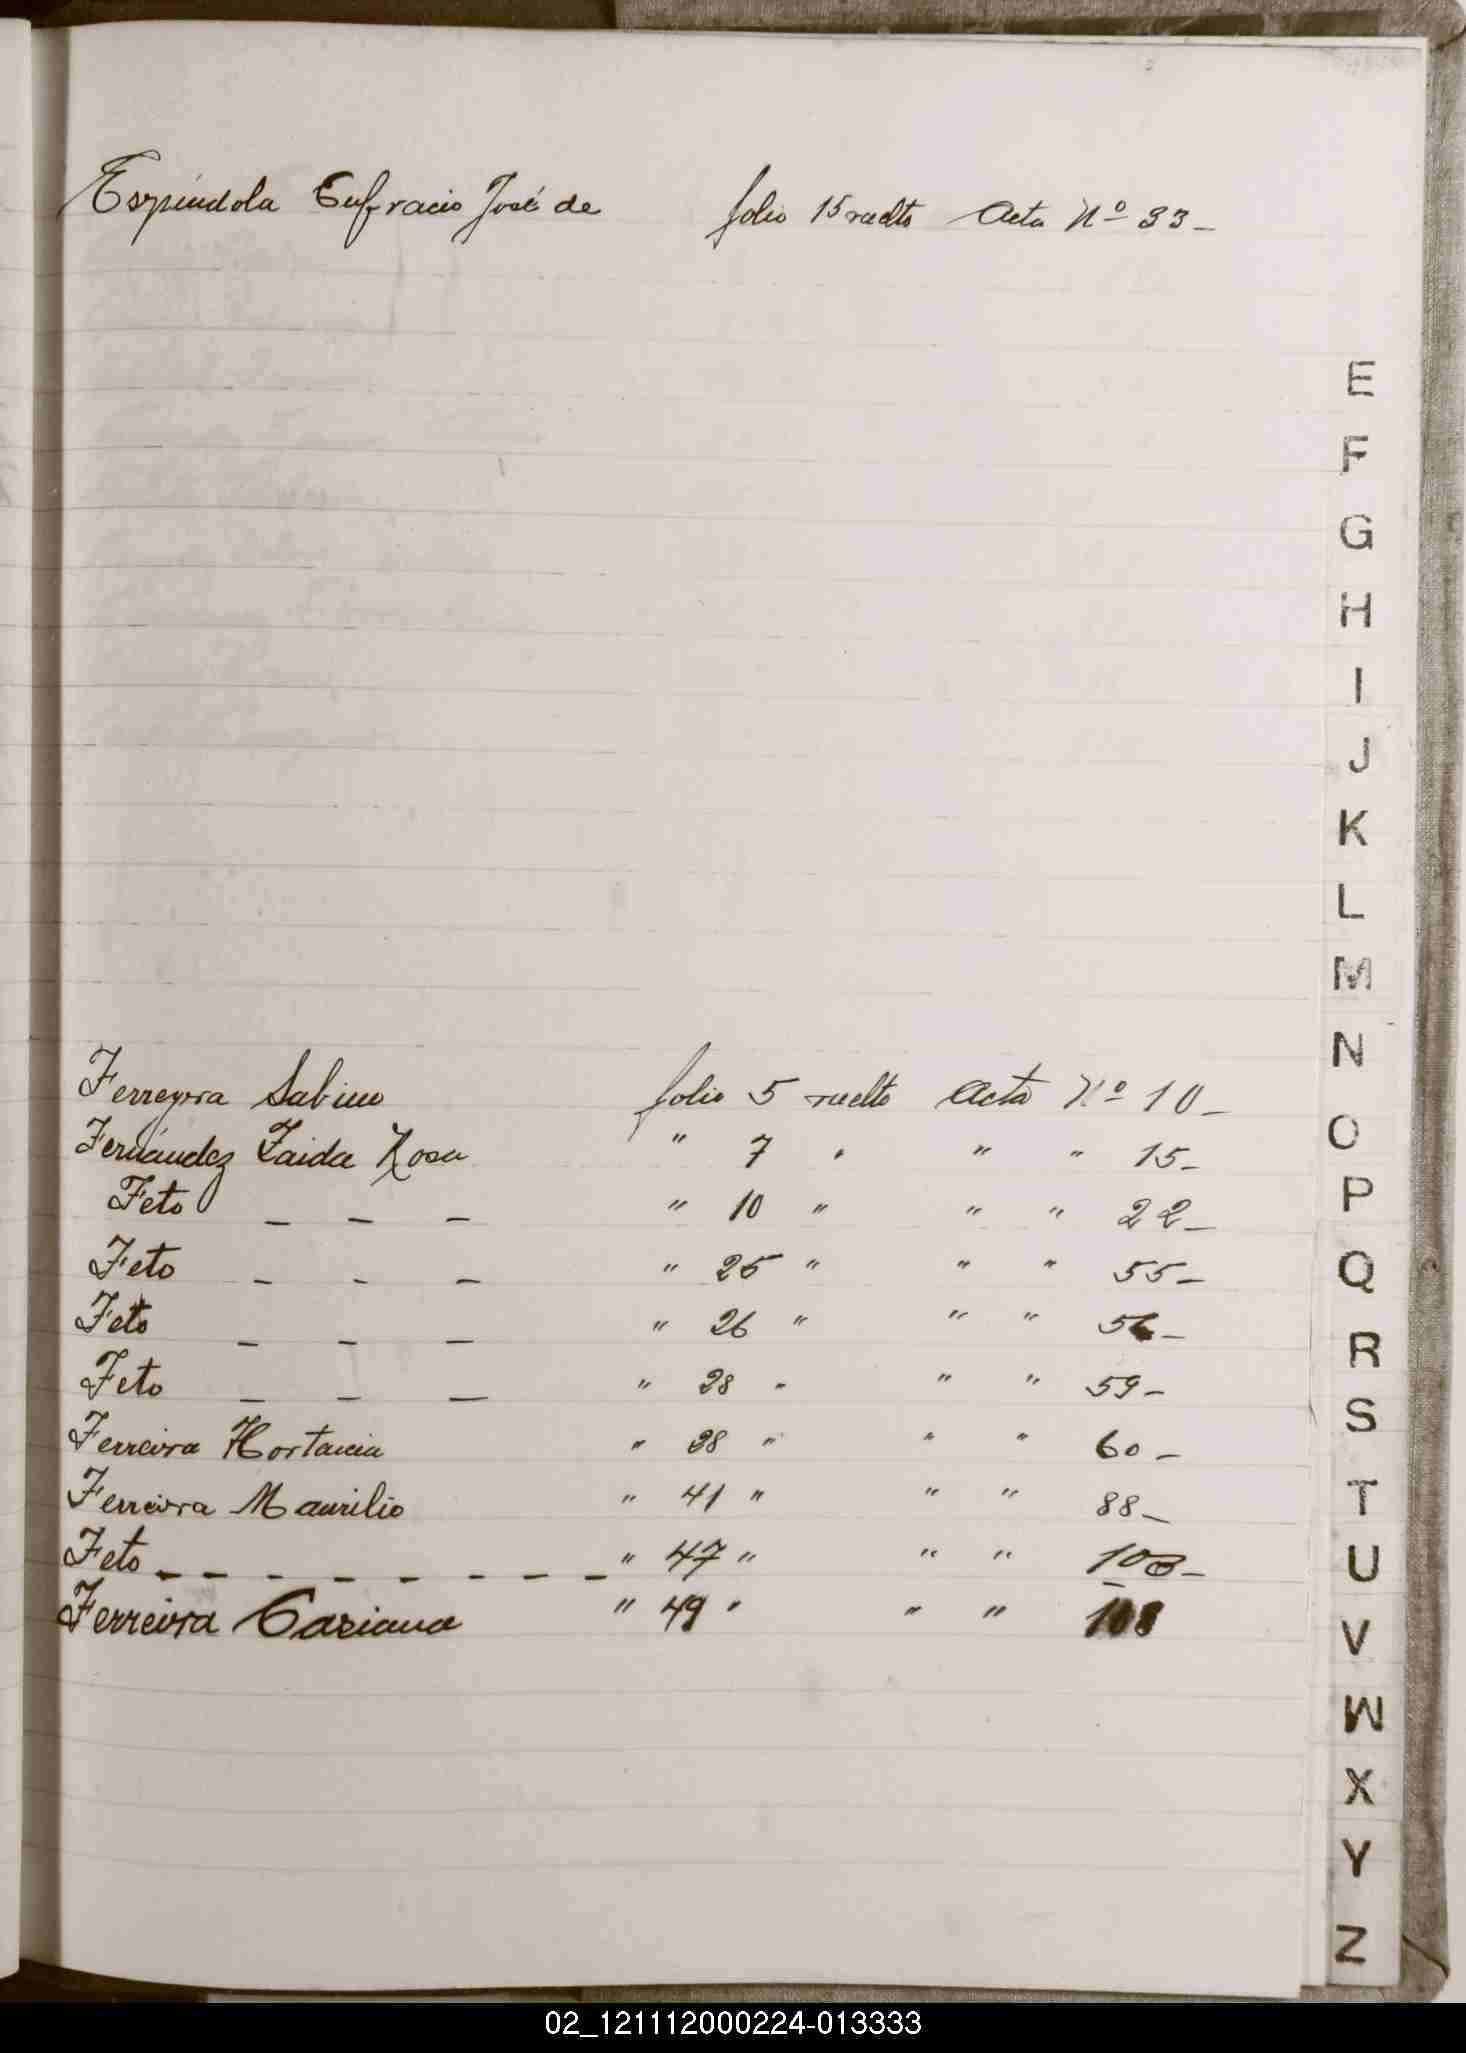 Espíndola Eufracio José de folio 15 vuelto Acta Nº 33-
E
F
G
H
I
J
K
L
M
N
O
P
Q
R
S
T
U
V
W
X
Y
Z
Ferreyra Sabino folio 5 vuelto Acta Nº 10-
Fernández Zaida Rosa " 7 " " " 15-
Feto - - - " 10 " " " 22-
Feto - - - " 25 " " " 55-
Feto - - - " 26 " " " 56-
Feto - - - " 28 " " " 59-
Ferreira Hortancia " 28 " " " 60-
Ferreira Maurilio " 41 " " " 88-
Feto - - - - - - - - " 47 " " " 103-
Ferreira Casiana " 49 " " " 108
02_121112000224-013333